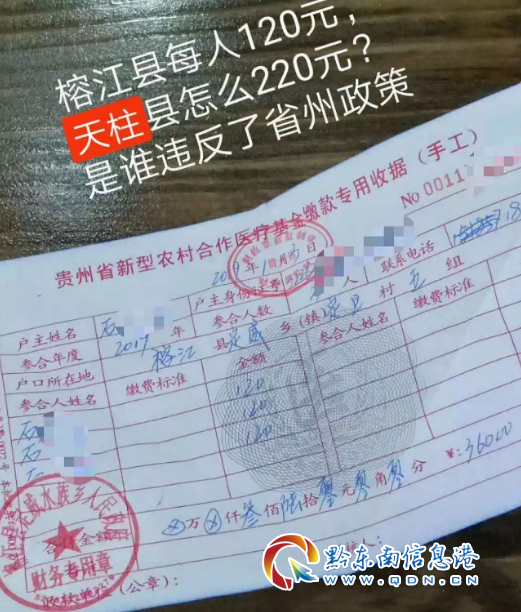 榕江县每人120元，
天柱县怎么220元？
是谁违反了省州政策
贵州省新型农村合作医疗基金缴款专用收据（手工）
No 0011
2019年1月
户主姓名 石
户主身份证
联系电话
参合年度 2019年
参合人数 人
户口所在地 榕江县定威乡（镇）定旦村五组
参合人姓名 缴费标准 金额 参合人姓名 缴费标准
石 120
石 120
120
合计金额 ⊗万⊗仟叁佰陆拾零元零角零分 ￥:360.00
定威水族乡人民政府
财务专用章
收款单位（公章）：
人：
黔东南信息港
www.QDN.cn